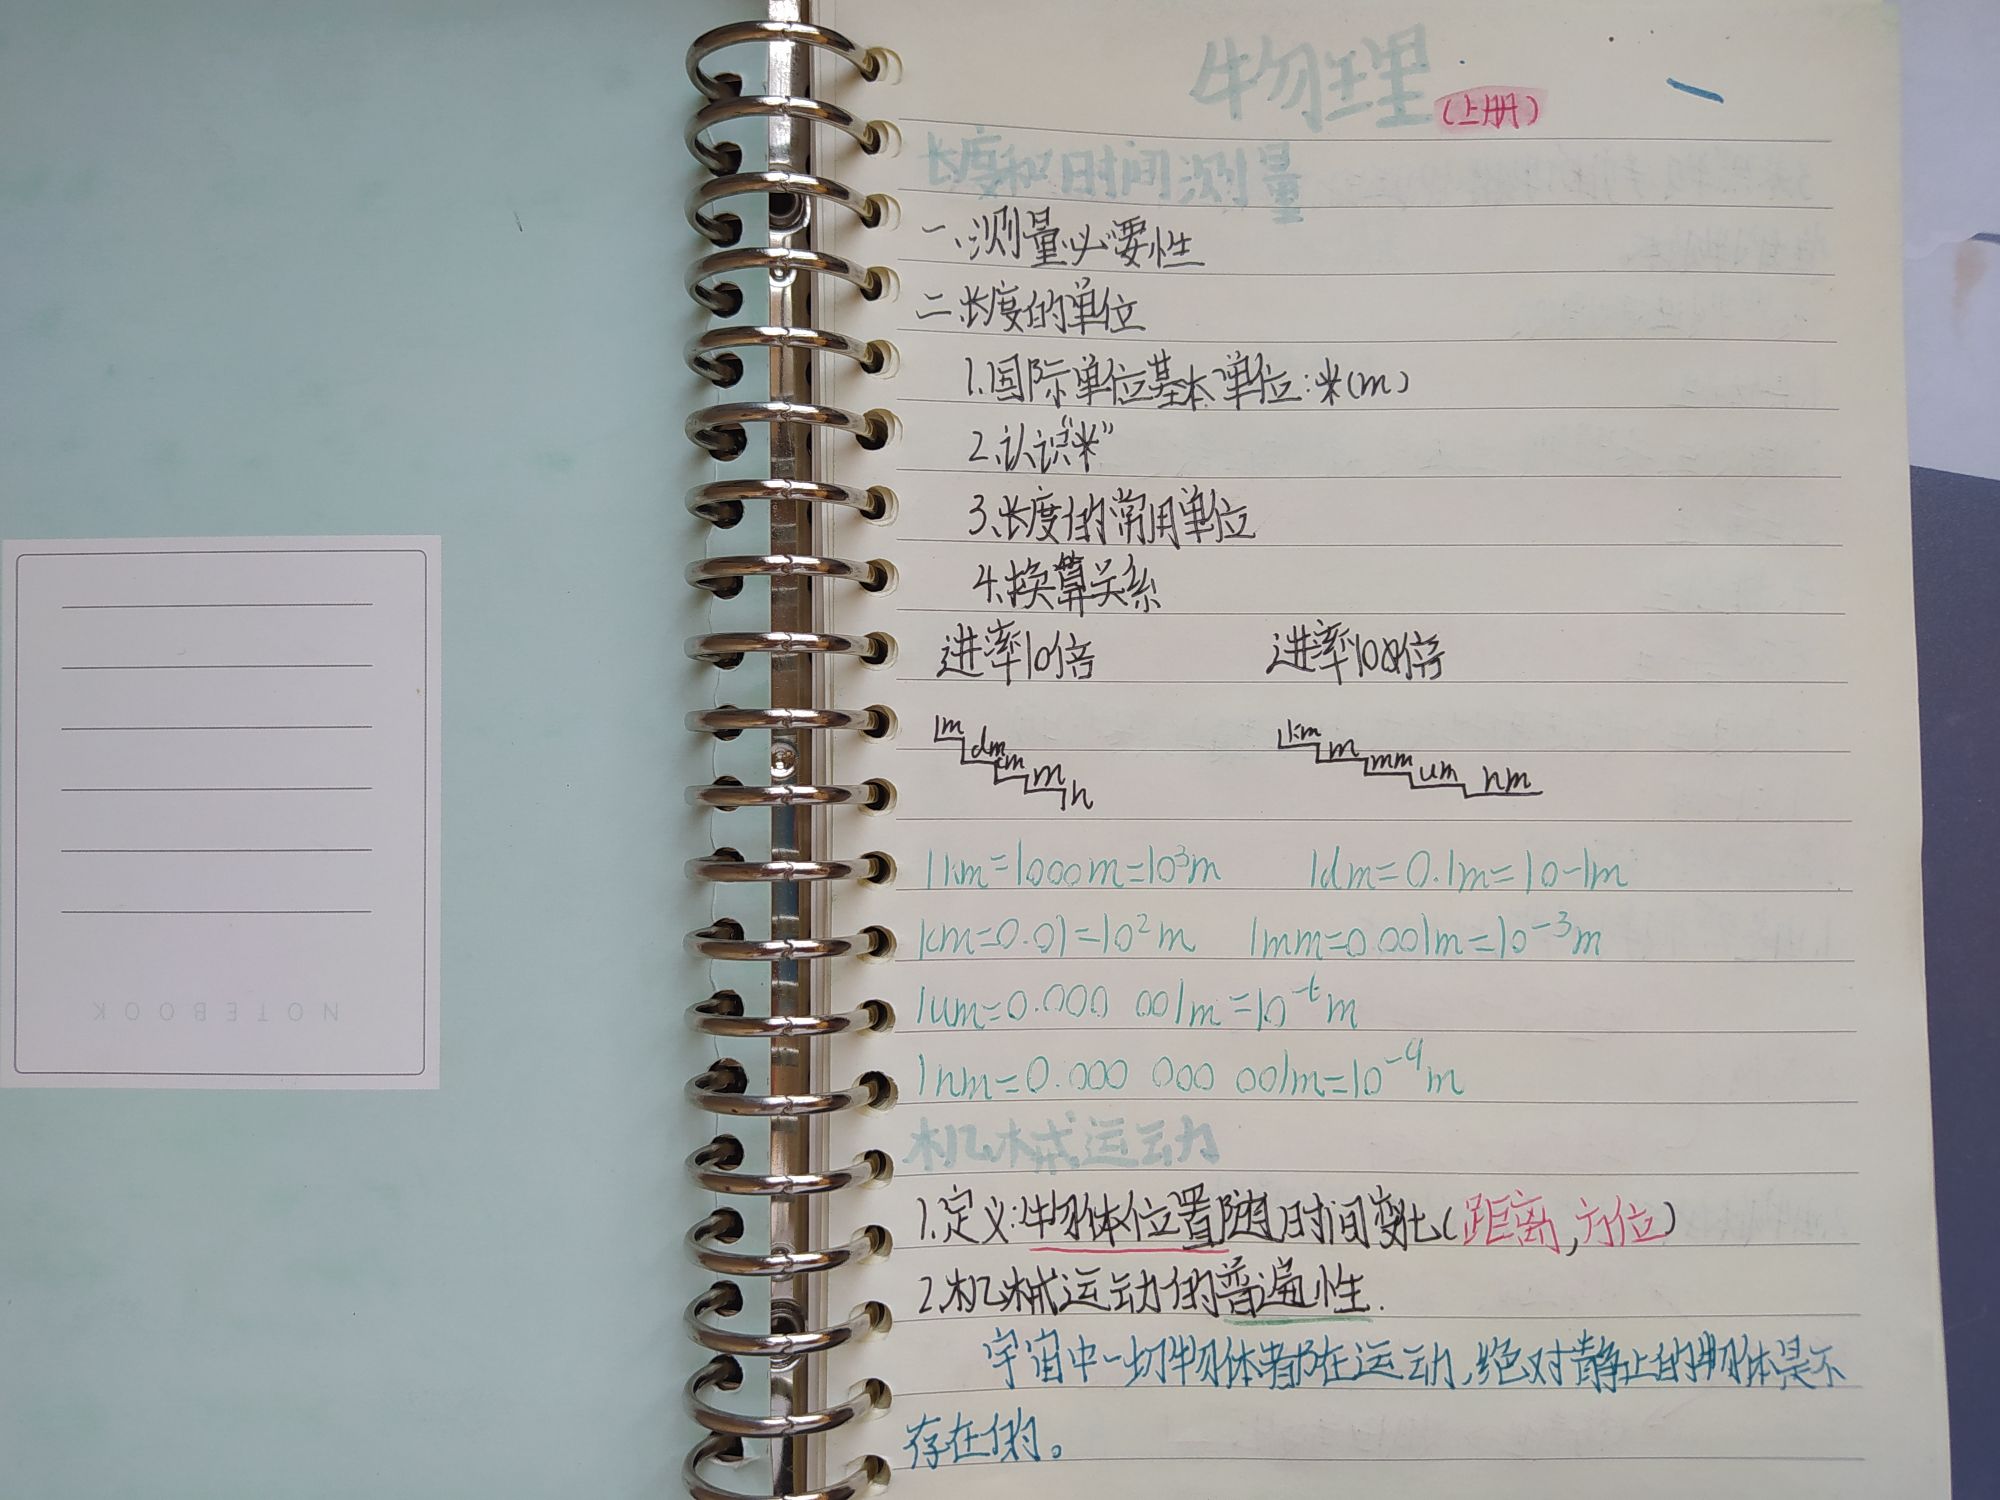 物理(上册)
长度和时间测量
一、测量必要性
二、长度的单位
1.国际单位基本单位:米(m)
2.认识“米”
3.长度的常用单位
4.换算关系
进率10倍 进率1000倍
1m dm cm m n
1km m mm um nm
1km=1000m=10³m 1dm=0.1m=10-1m
1cm=0.01=10²m 1mm=0.001m=10⁻³m
1um=0.000 001m=10⁻⁶m
1nm=0.000 000 001m=10⁻⁹m
机械运动
1.定义:物体位置随时间变化(距离,方位)
2.机械运动的普遍性.
宇宙中一切物体都在运动,绝对静止的物体是不
存在的。
NOTEBOOK